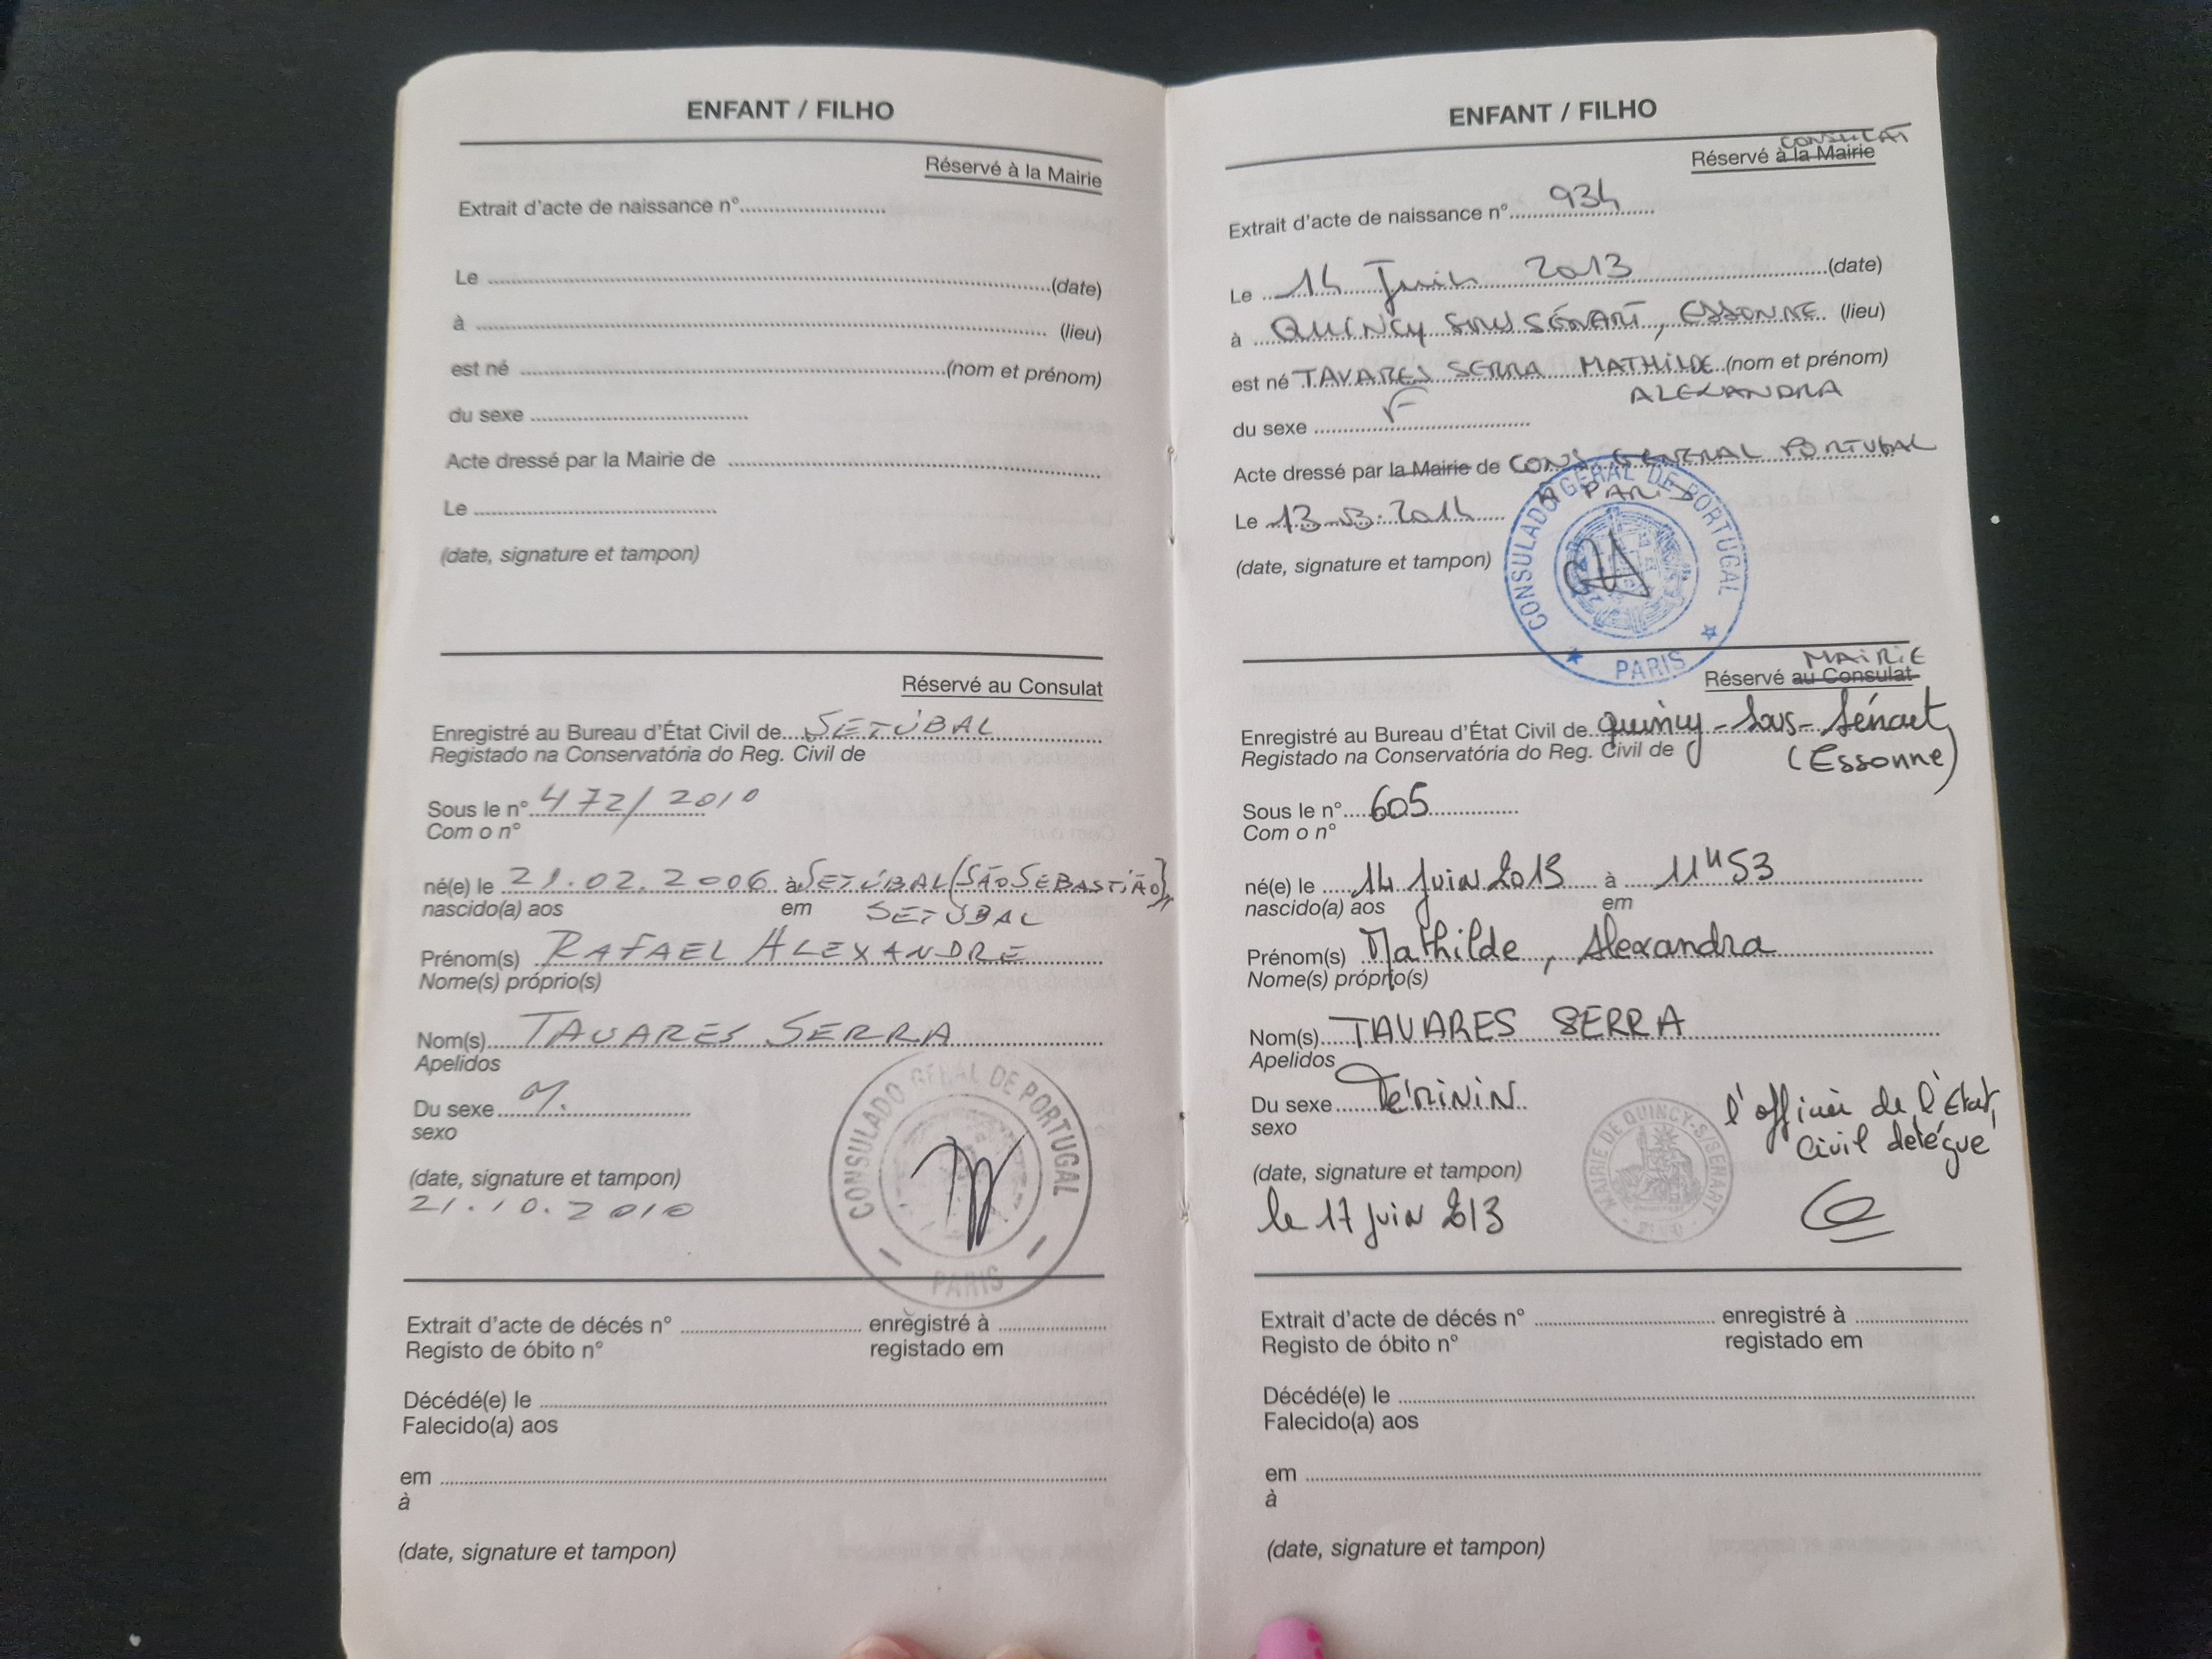 ENFANT / FILHO
Réservé à la Mairie
Extrait d'acte de naissance n°
Le (date)
à (lieu)
est né (nom et prénom)
du sexe
Acte dressé par la Mairie de
Le
(date, signature et tampon)
Réservé au Consulat
Enregistré au Bureau d'État Civil de SETÚBAL
Registado na Conservatória do Reg. Civil de
Sous le n° 472/2010
Com o n°
né(e) le 21.02.2006 à SETÚBAL (SÃO SEBASTIÃO),
nascido(a) aos em SETÚBAL
Prénom(s) RAFAEL ALEXANDRE
Nome(s) próprio(s)
Nom(s) TAVARES SERRA
Apelidos
Du sexe M.
sexo
CONSULADO GERAL DE PORTUGAL
PARIS
(date, signature et tampon)
21.10.2010
Extrait d'acte de décés n° enregistré à
Registo de óbito n° registado em
Décédé(e) le
Falecido(a) aos
em
à
(date, signature et tampon)
ENFANT / FILHO
CONSULAT
Réservé à la Mairie
Extrait d'acte de naissance n° 934
Le 14 Juin 2013 (date)
à QUINCY SOUS SÉNART, ESSONNE (lieu)
est né TAVARES SERRA MATHILDE (nom et prénom)
ALEXANDRA
du sexe F
Acte dressé par la Mairie de CONS. GENERAL PORTUGAL
A PARIS
Le 13.03.2014
(date, signature et tampon)
CONSULADO GERAL DE PORTUGAL
PARIS
MAIRIE
Réservé au Consulat
Enregistré au Bureau d'État Civil de Quincy-Sous-Sénart
Registado na Conservatória do Reg. Civil de (Essonne)
Sous le n° 605
Com o n°
né(e) le 14 Juin 2013 à 11H53
nascido(a) aos em
Prénom(s) Mathilde, Alexandra
Nome(s) próprio(s)
Nom(s) TAVARES SERRA
Apelidos
Du sexe Féminin
sexo
MAIRIE DE QUINCY-S/SENART
l'officier de l'État
Civil délégué
(date, signature et tampon)
le 17 Juin 2013
Extrait d'acte de décés n° enregistré à
Registo de óbito n° registado em
Décédé(e) le
Falecido(a) aos
em
à
(date, signature et tampon)